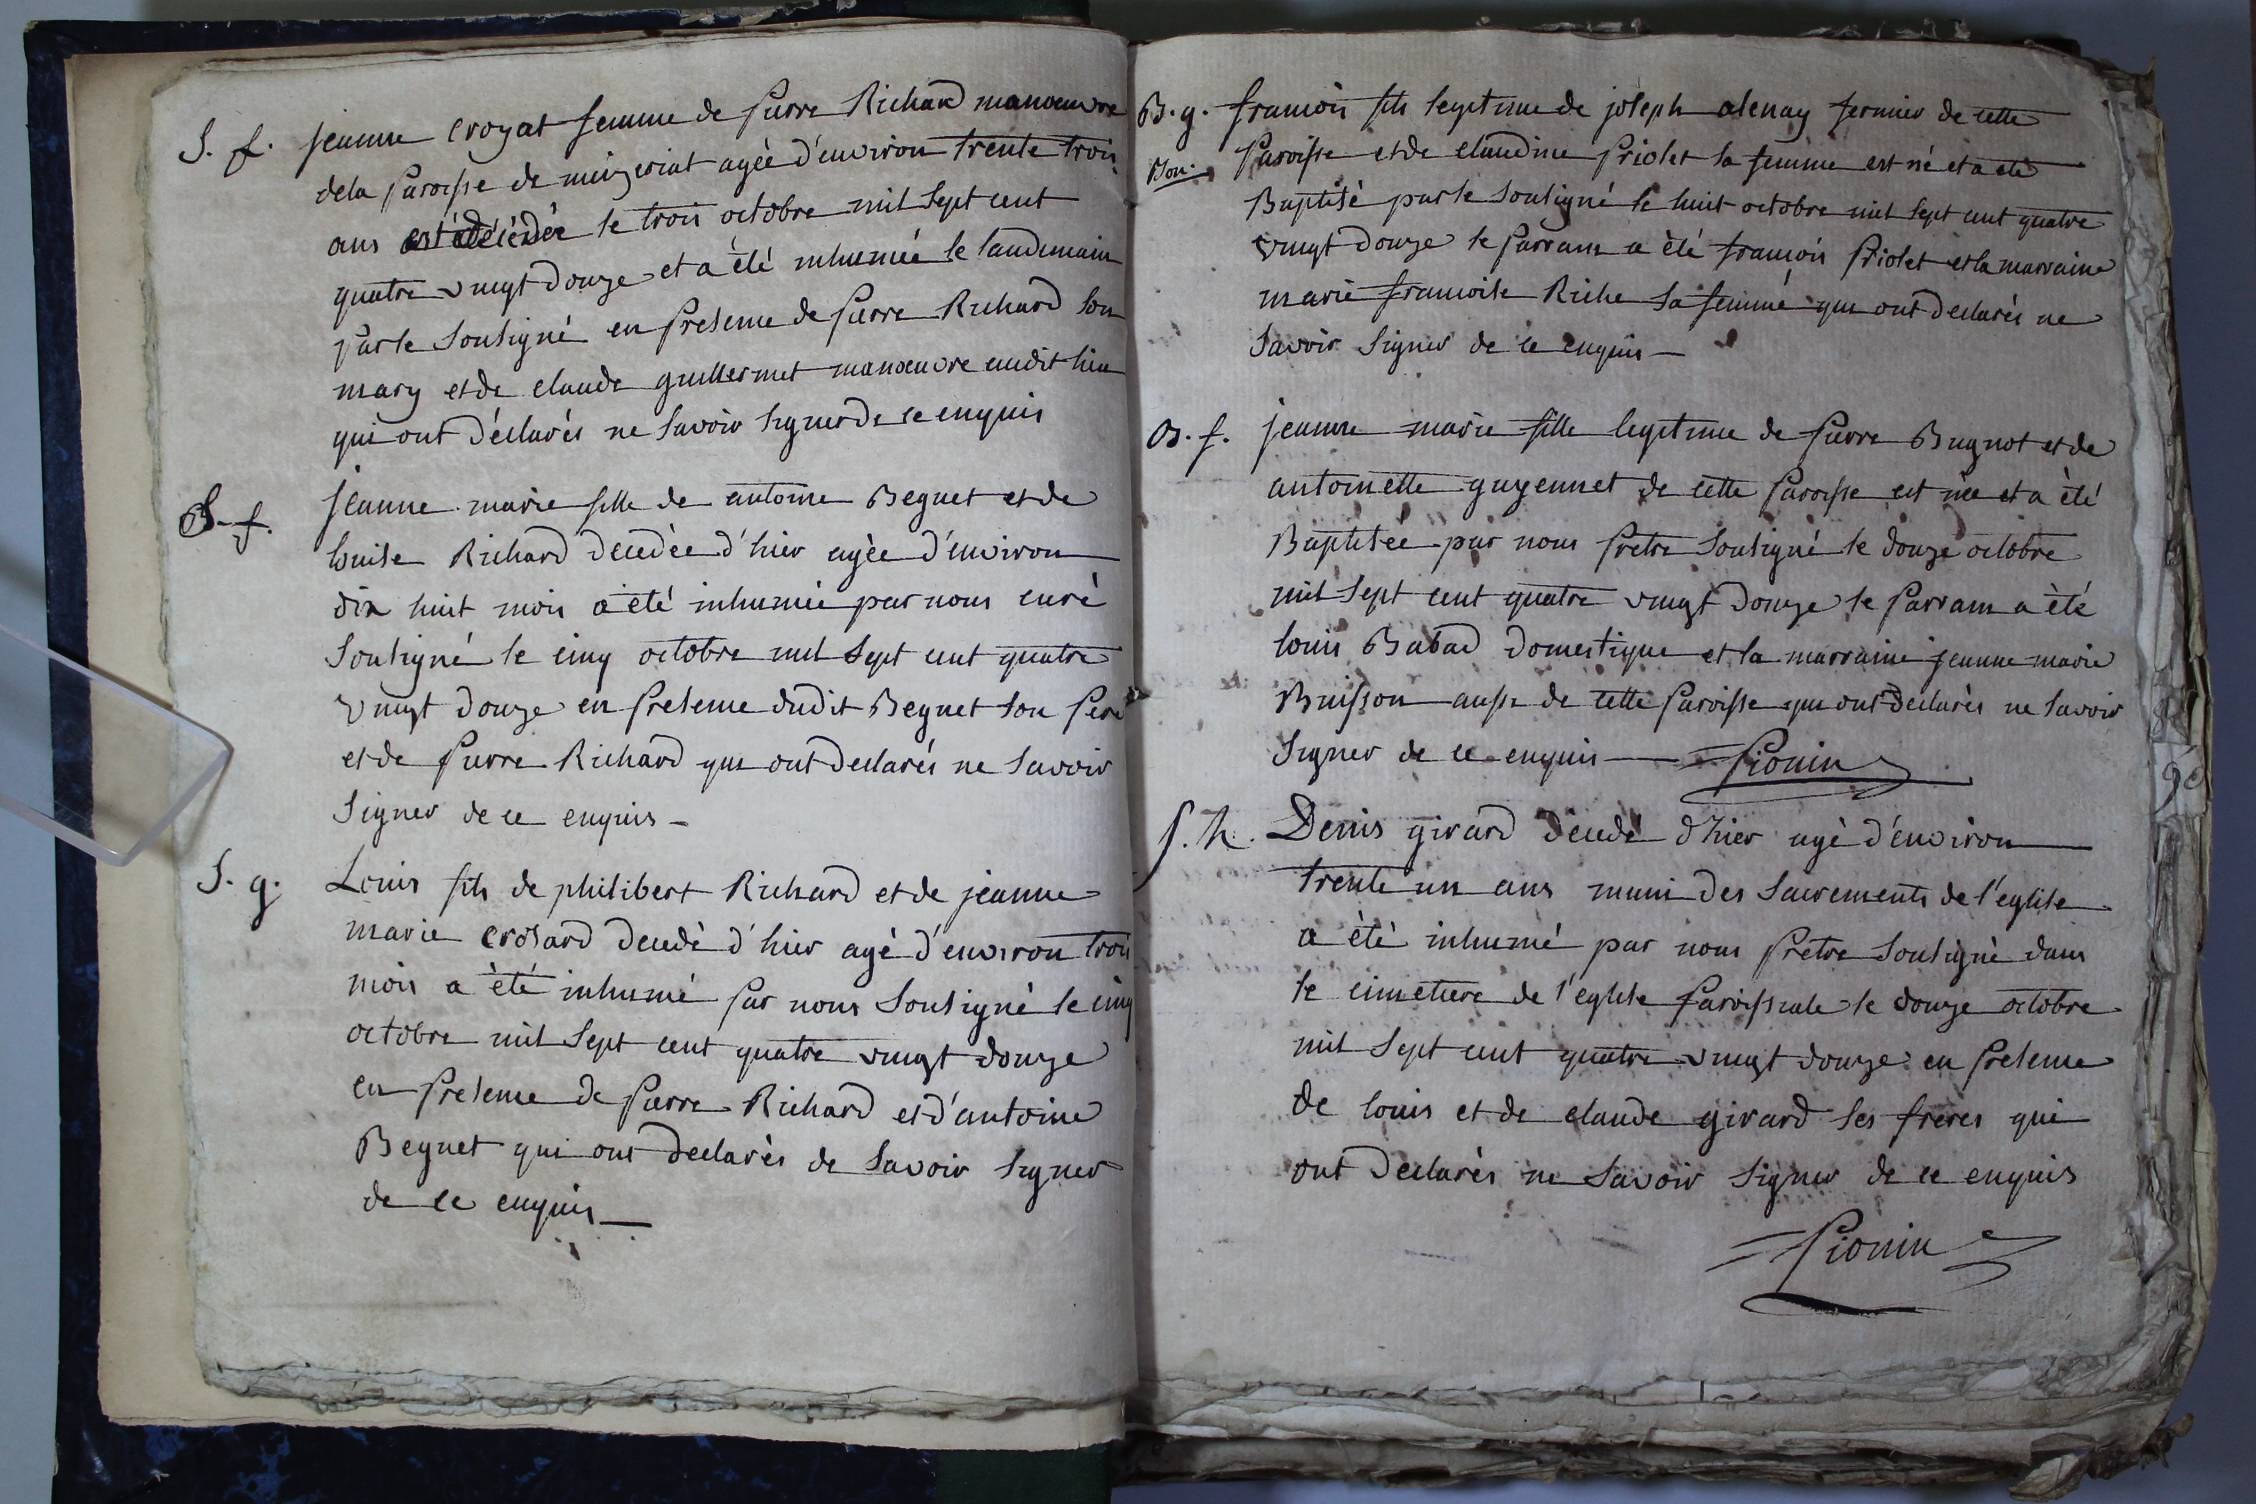 S. f. jeanne croyat femme de pierre Richard manoeuvre
dela paroisse de mézeriat agée d'environ trente trois
ans est décédée le trois octobre mil sept cent
quatre vingt douze et a été inhumée le landemain
par le soussigné en presence de pierre Richard son
mary et de claude guillermet manoeuvre audit lieu
qui ont déclarés ne savoir signer de ce enquis
S. f. jeanne marie fille de antoine Beguet et de
louise Richard decedée d'hier agée d'environ
dix huit mois a été inhumée par nous curé
soussigné le cinq octobre mil sept cent quatre
vingt douze en presence dudit Beguet son pere
et de pierre Richard qui ont declarés ne savoir
signer de ce enquis -
S. g. Louis fils de philibert Richard et de jeanne
marie crozard decedé d'hier agé d'environ trois
mois a été inhumé par nous soussigné le cinq
octobre mil sept cent quatre vingt douze
en presence de pierre Richard et d'antoine
Beguet qui ont declarés de savoir signer
de ce enquis —
B. g. francois fils legitime de joseph alenay fermier de cette
paroisse et de claudine priolet sa femme est né et a été
Baptisé par le soussigné le huit octobre mil sept cent quatre
vingt douze le parrain a été francois priolet et la marraine
marie francoise Riche sa femme qui ont declarés ne
savoir signer de ce enquis —
B. f. jeanne marie fille legitime de pierre Bugnot et de
antoinette guyennet de cette paroisse est née et a été
Baptisée par nous pretre soussigné le douze octobre
mil sept cent quatre vingt douze le parrain a été
louis Babad domestique et la marraine jeanne marie
Buisson aussi de cette paroisse qui ont declarés ne savoir
signer de ce enquis — Pionin
S. h. Denis girard decedé d'hier agé d'environ
trente un ans muni des sacrements de l'eglise
a été inhumé par nous pretre soussigné dans
le cimetiere de l'eglise paroissiale le douze octobre
mil sept cent quatre vingt douze en presence
de louis et de claude girard ses freres qui
ont declarés ne savoir signer de ce enquis
Pionin